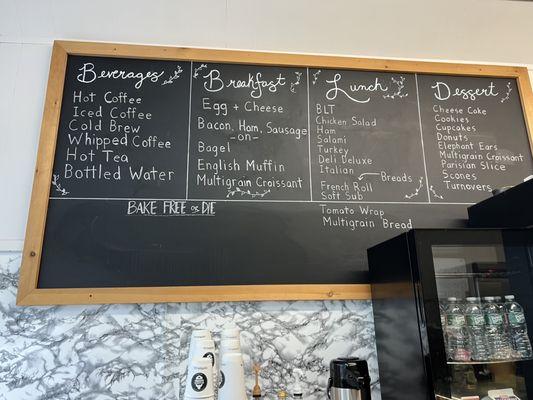 Beverages
Hot Coffee
Iced Coffee
Cold Brew
Whipped Coffee
Hot Tea
Bottled Water
Breakfast
Egg + Cheese
Bacon, Ham, Sausage
-on-
Bagel
English Muffin
Multigrain Croissant
Lunch
BLT
Chicken Salad
Ham
Salami
Turkey
Deli Deluxe
Italian
Breads
French Roll
Soft Sub
Tomato Wrap
Multigrain Bread
Dessert
Cheese Cake
Cookies
Cupcakes
Donuts
Elephant Ears
Multigrain Croissant
Parisian Slice
Scones
Turnovers
BAKE FREE OR DIE